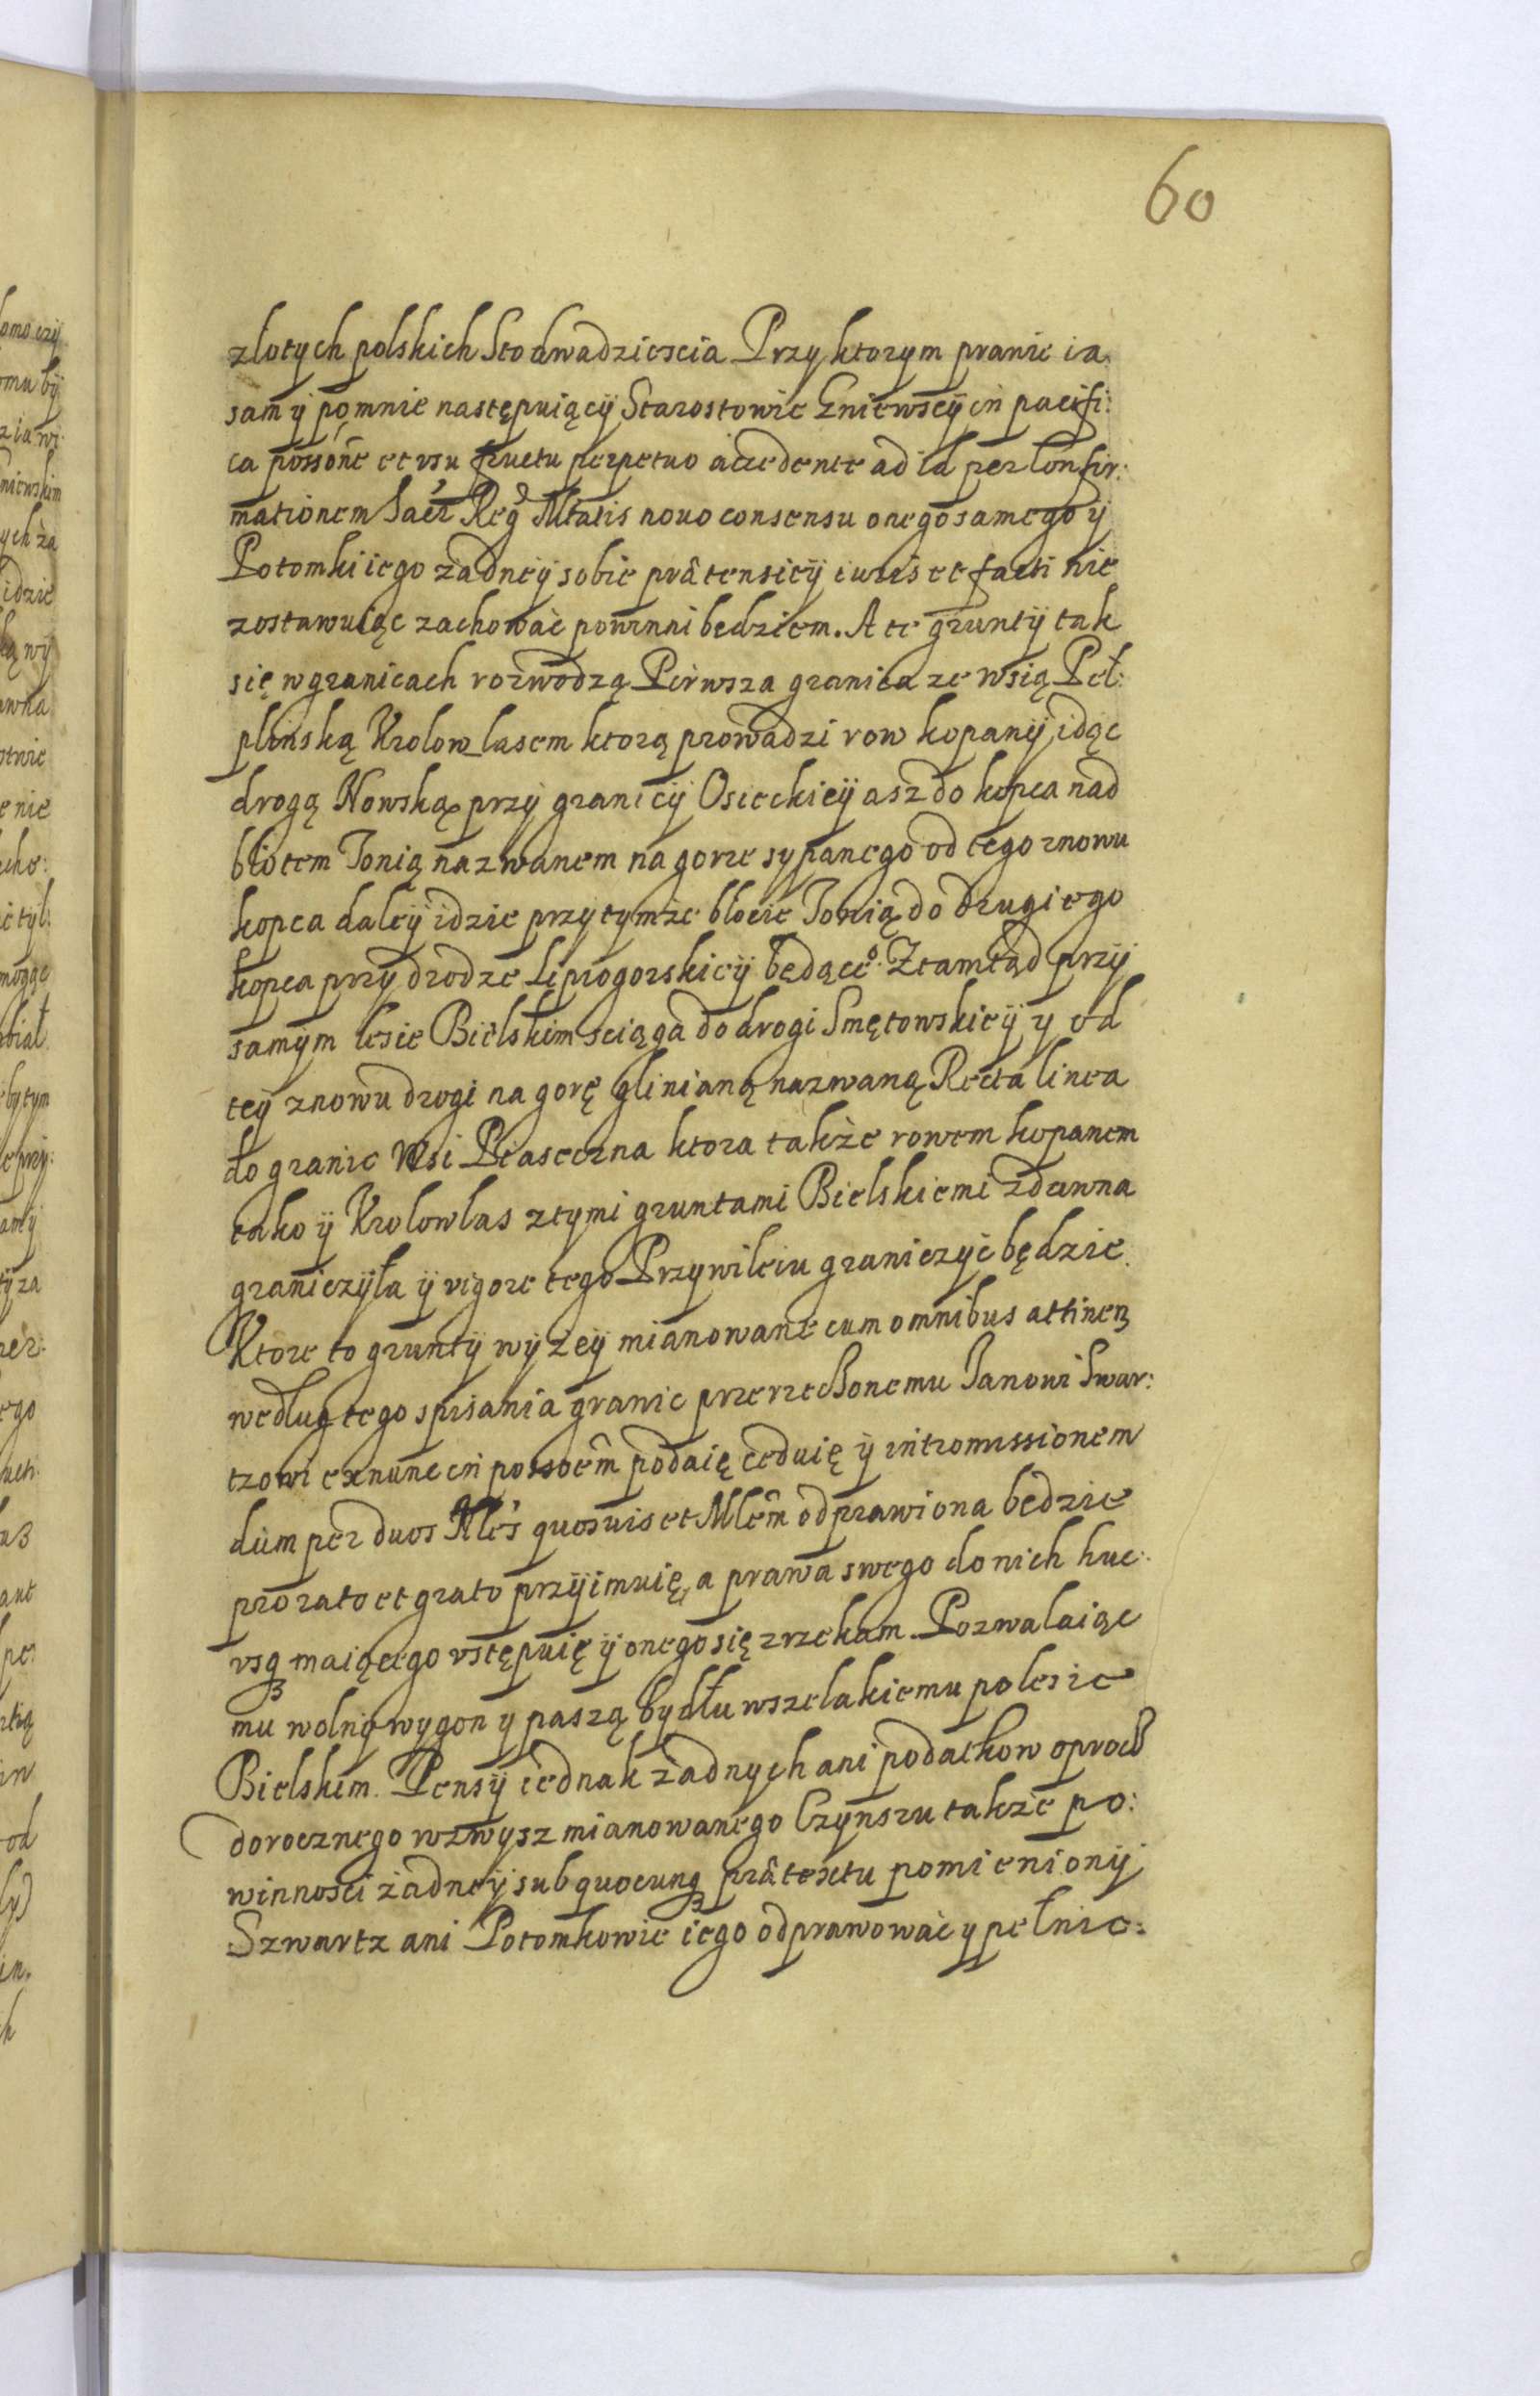 60
złotych polskich Sto dwadziescia Przy ktorym prawie ia
sam ÿ po mnie następuiącÿ Starostowie Gniewscÿ in pacifi:
ca possone et vsu fructu perpetuo accedente ad id per Confir:
mationem Sacr Reg Mtatis nouo consensu onego samego ÿ
Potomki iego żadneÿ sobie prætensieÿ iuris et facti nie
zostawuiąc zachować powinni bedziem. A te gruntÿ tak
się w granicach rozwodzą Pierwsza granica ze wsią Pel:
plinską Krolow_lasem ktorą prowadzi row kopanÿ, idąc
drogą Nowską przÿ granicÿ Osieckieÿ asz do kopca nad
błotem Tonią nazwanem na gorze sypanego od tego znowu
kopca daleÿ idzie przy tymże błocie Tonią do drugiego
kopca przÿ drodze Liprogorskieÿ będące°. Ztamtąd przÿ
samÿm lesie Bielskim sciąga do drogi Smętowskieÿ y od
teÿ znowu drogi na gorę glinianą nazwaną Recta linea
do granic Wsi Piaseczna ktora także rowem kopanem
iako ÿ Krolowlas z tymi gruntami Bielskiemi zdawna
graniczÿła ÿ vigore tego Przywileiu graniczyć będzie.
Ktore to gruntÿ wÿżeÿ mianowane cum omnibus attinen
według tego spisania granic przerzeczonemu Janowi Swar:
tzowi exnunc in possoem podaię ceduię ÿ intromissionem
dum per duos Nles quosuis et Mlem odprawiona bedzie
pro rato et grato przÿimuię, a prawa swego do nich huc:
usqꝫ maiącego vstępuię ÿ onego się zrzekam. Pozwalaiąc
mu wolnÿ wygon y paszą bydłu wszelakiemu po lesie
Bielskim. Pensÿ iednak żadnych ani podatkow oprocz
dorocznego wzwysz mianowanego Czynszu także po:
winności żadneÿ sub quocunqꝫ prætextu pomienionÿ
Szwartz ani Potomkowie iego odprawować y pełnic: